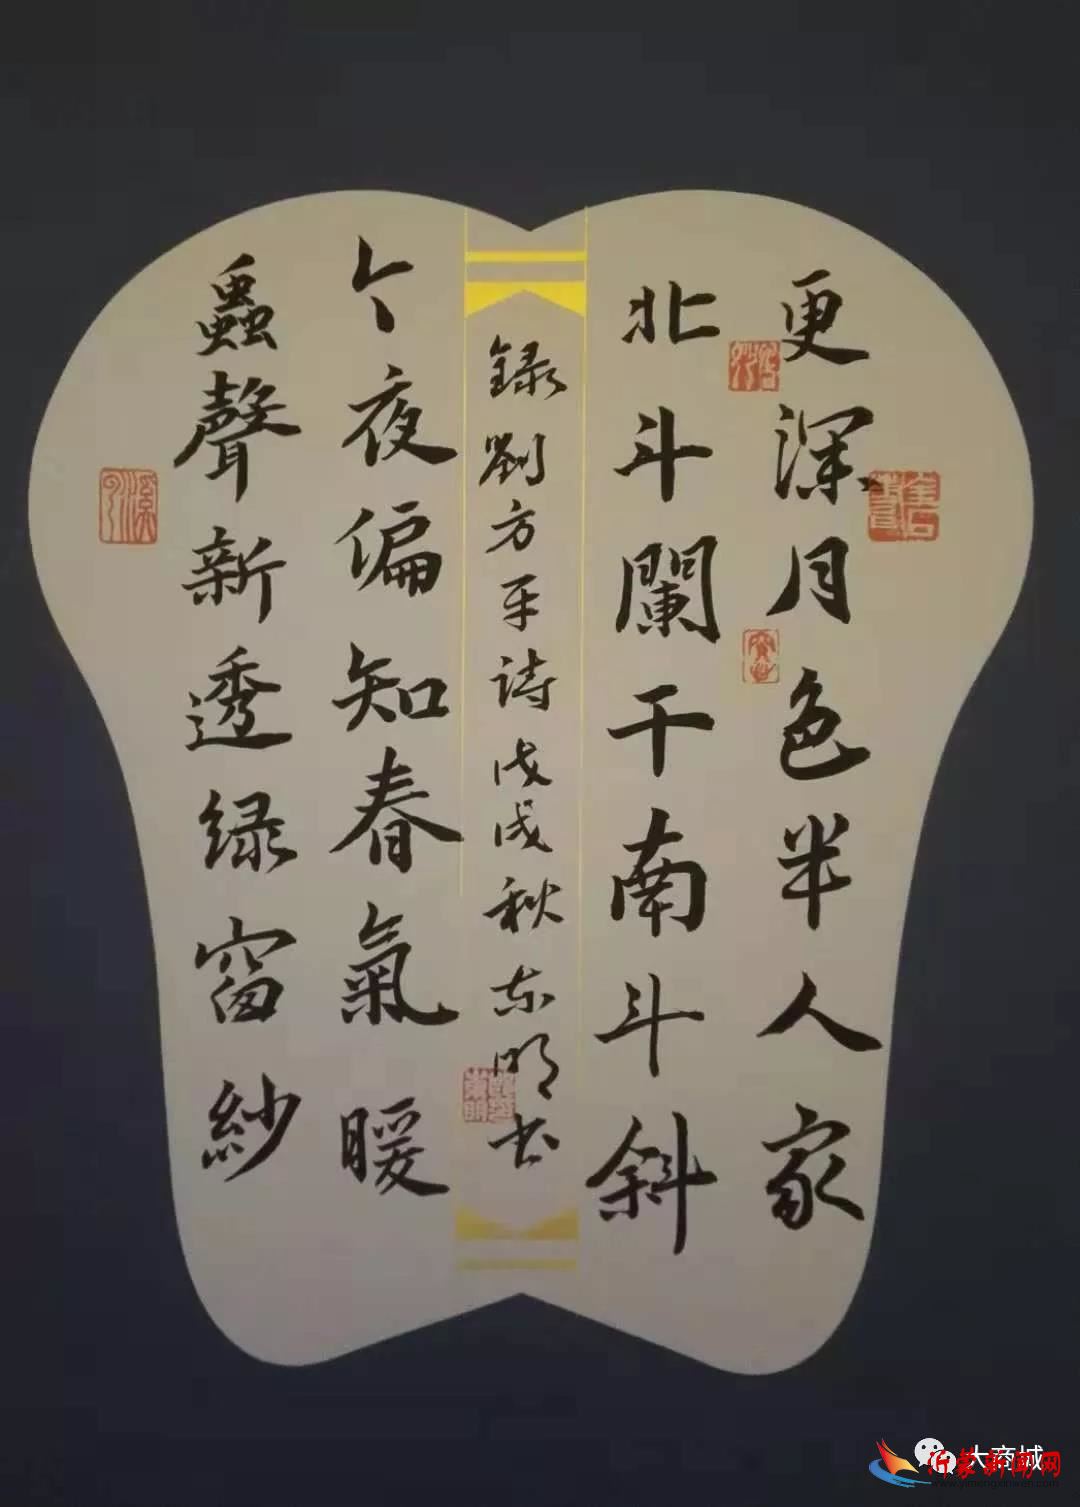 更深月色半人家
北斗闌干南斗斜
録劉方平詩戊戌秋东明书
今夜偏知春氣暖
蟲聲新透緑窗紗
大商城
沂蒙新闻网
www.yimengxinwen.com